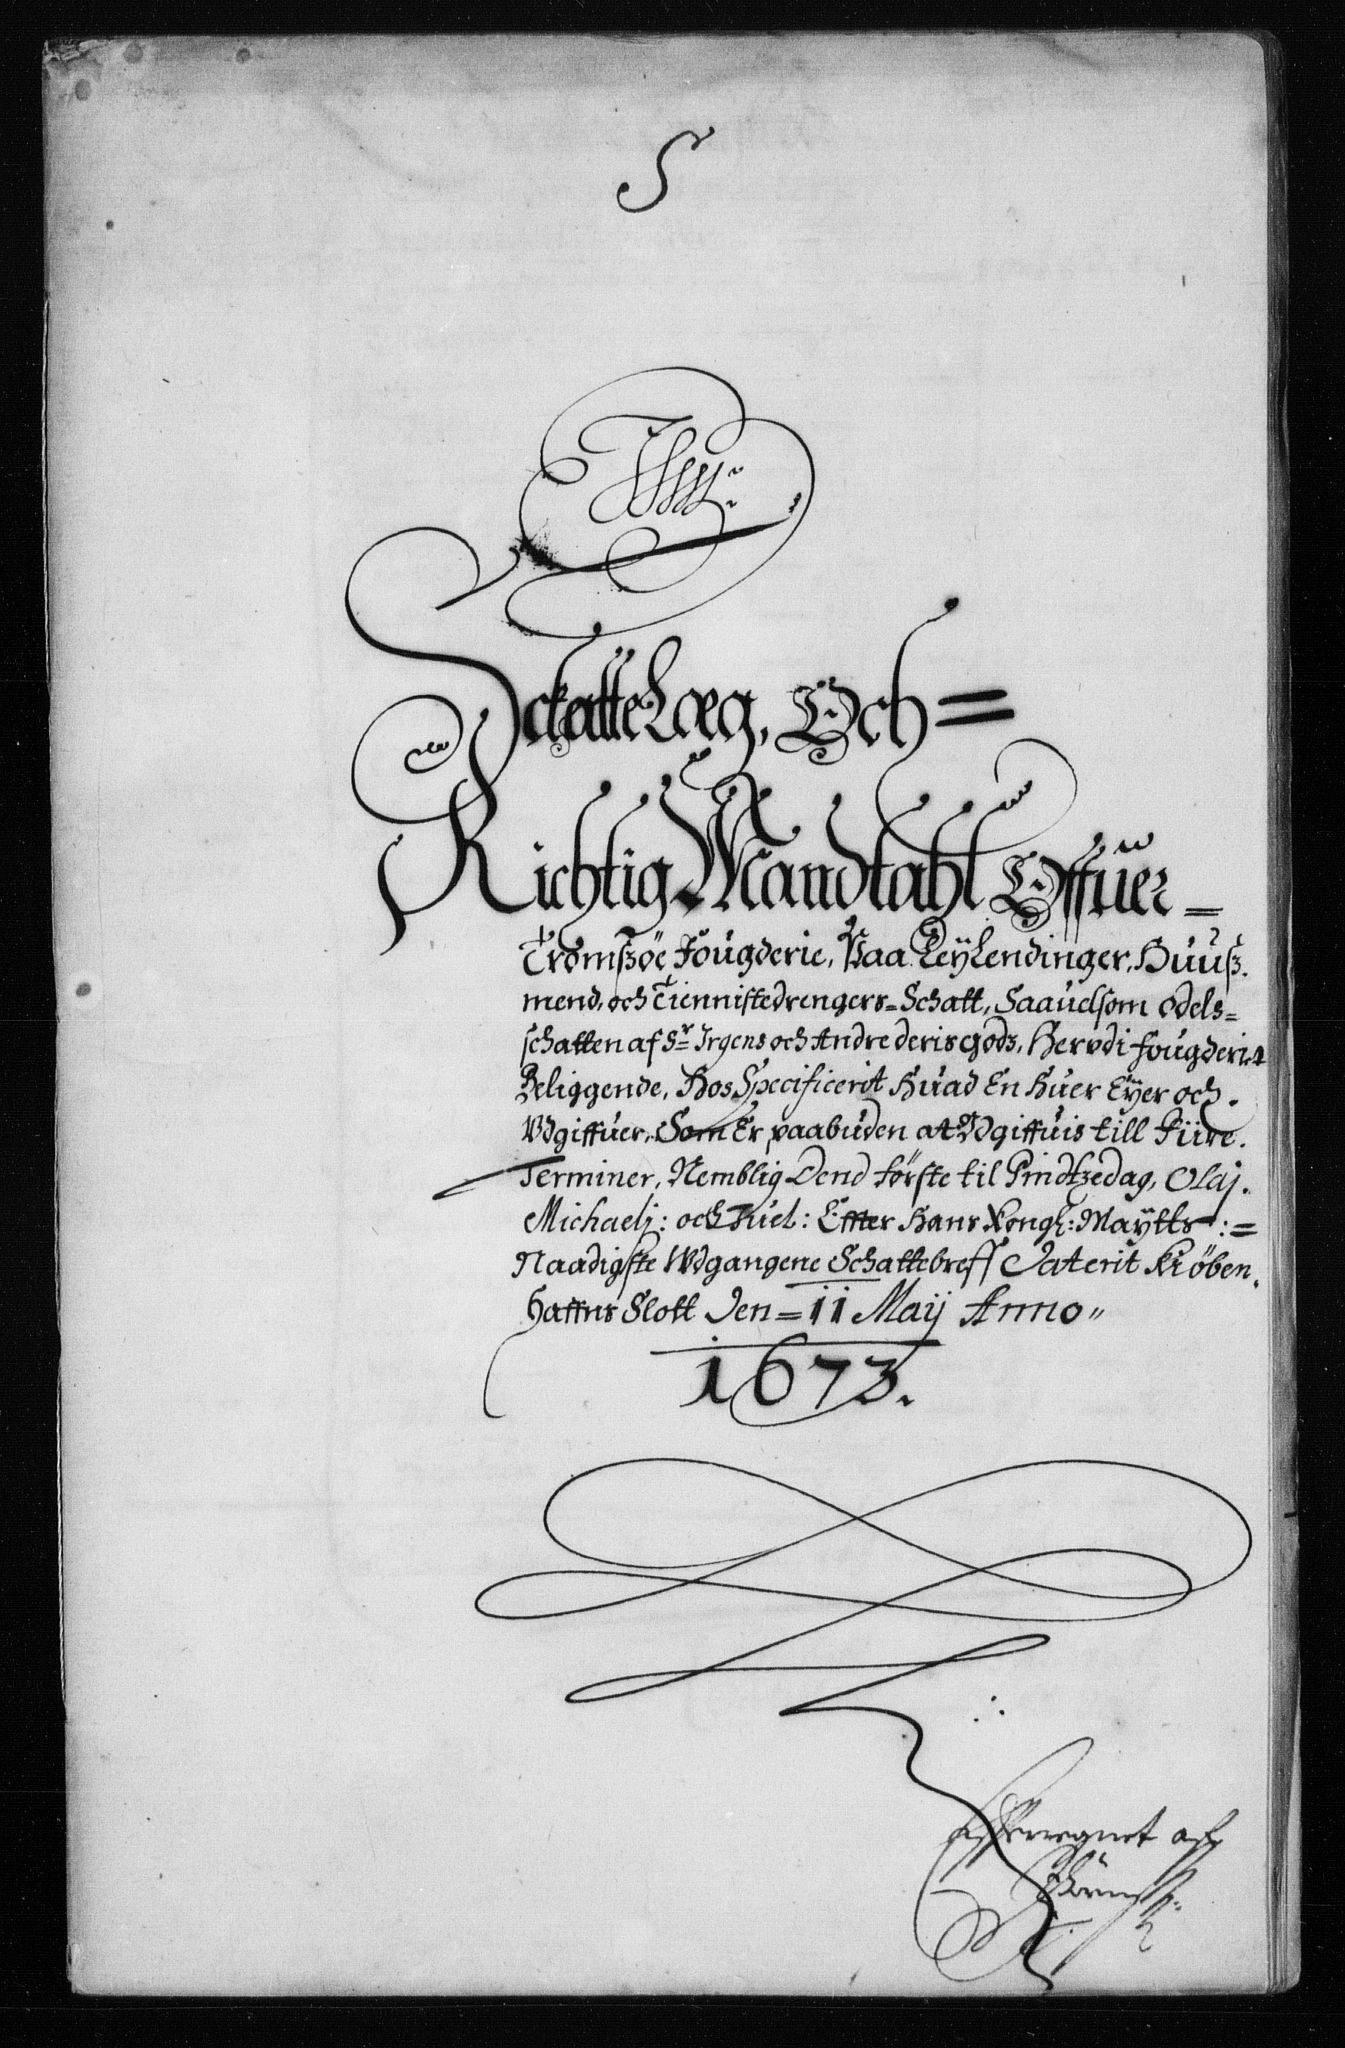 S
Schatte Læg, Och =
Richtig Mandtahl Offuer =
Tromszøe Fougderie, Paa Leÿlendinger, Huusz-
mend, och Tiennistedrengers = Schatt, Saauelsom Odels =
schatten af Sr Irgens och Andre deris gods, Her vdi fougderiet
Beliggende, Hos Specificerit Huad En Huer Eÿer och
Vdgiffuer, Som Er paabuden at Vdgiffuis till Fiire
Terminer, Nemblig Dend første til Pindtzedag, Olaj.
Michaelj: och Juel: Effter Hans Kongl: Maÿtts: =
Naadigste Vdgangene Schattebreff Daterit Kiøben-
Haffns Slott Den = 11 Maij Anno
1673.